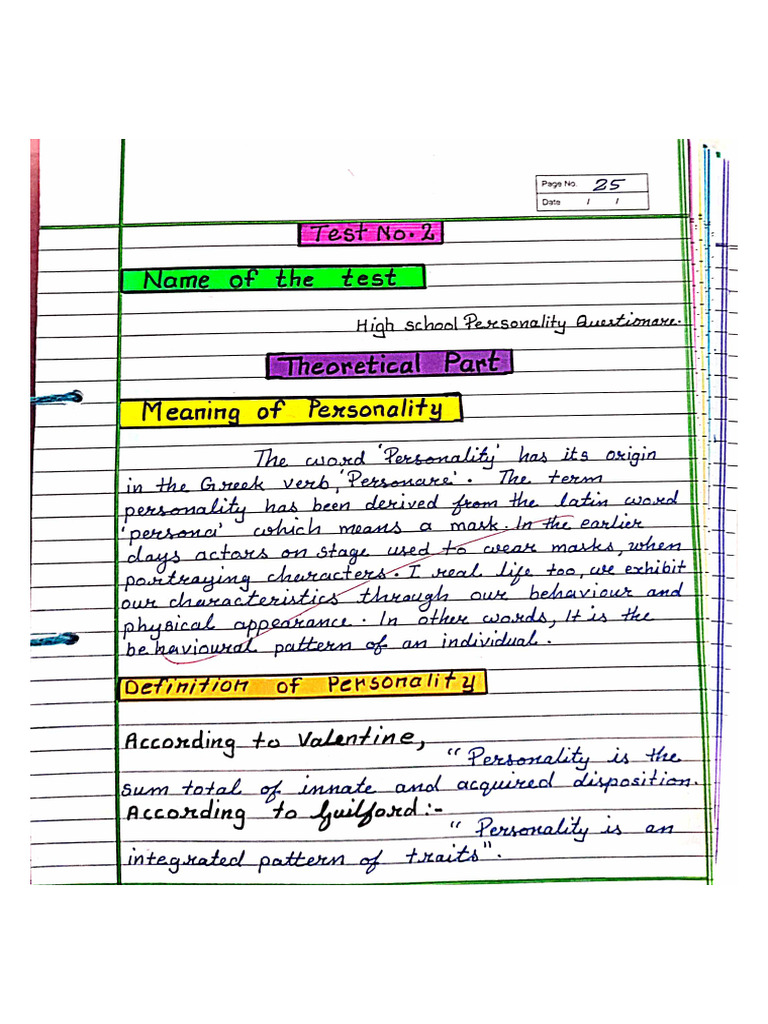 Page No. 25
Date / /
Test No. 2
Name of the test
High school Personality Questionare.
Theoretical Part
Meaning of Personality
The word 'Personality' has its origin
in the Greek verb, 'Personare'. The term
personality has been derived from the latin word
'persona' which means a mask. In the earlier
days actors on stage used to wear masks, when
portraying characters. I real life too, we exhibit
our characteristics through our behaviour and
physical appearance. In other words, It is the
behavioural pattern of an individual.
Definition of Personality
According to Valentine,
"Personality is the
sum total of innate and acquired disposition.
According to Guilford:-
"Personality is an
integrated pattern of traits".